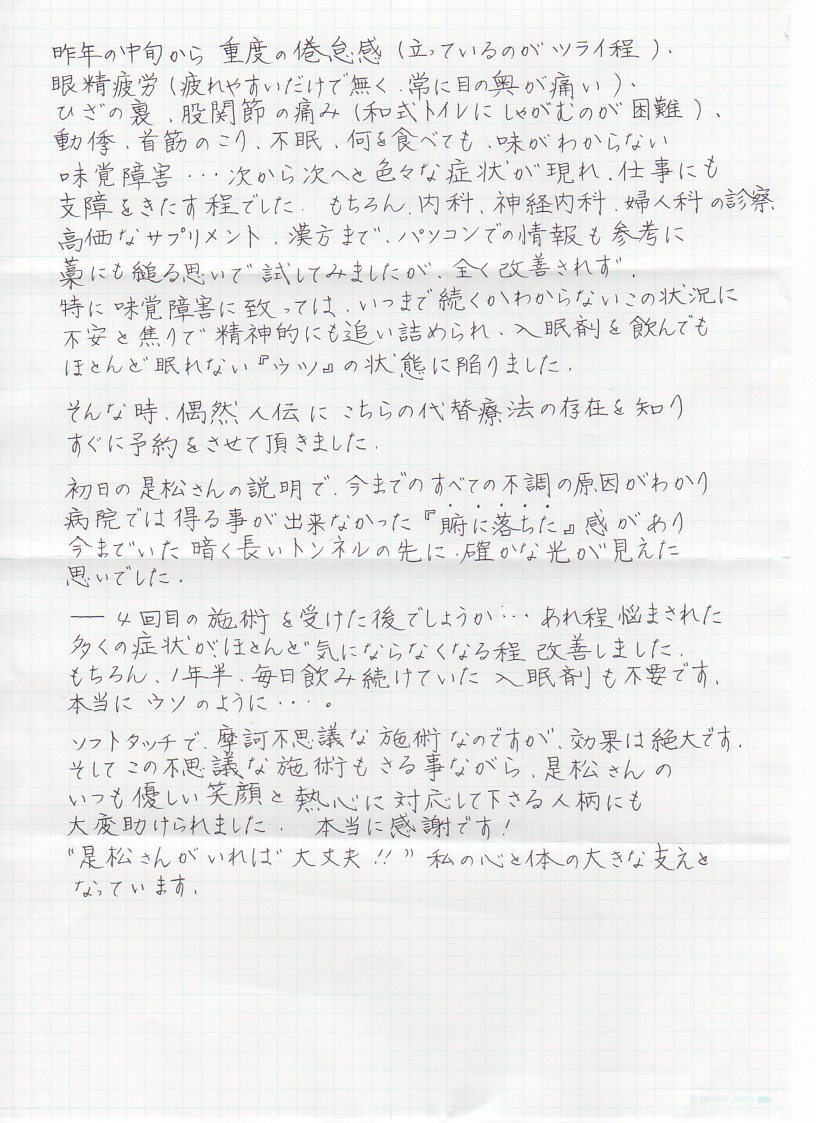 昨年の中旬から 重度の倦怠感 (立っているのがツライ程)、
眼精疲労 (疲れやすいだけで無く、常に目の奥が痛い)、
ひざの裏、股関節の痛み (和式トイレにしゃがむのが困難)、
動悸、首筋のこり、不眠、何を食べても、味がわからない
味覚障害・・・次から次へと色々な症状が現れ、仕事にも
支障をきたす程でした もちろん、内科、神経内科、婦人科の診察、
高価なサプリメント、漢方まで、パソコンでの情報も参考に
藁にも縋る思いで試してみましたが、全く改善されず、
特に味覚障害に致っては、いつまで続くかわからないこの状況に
不安と焦りで精神的にも追い詰められ、入眠剤を飲んでも
ほとんど眠れない『ウツ』の状態に陥りました。
そんな時、偶然人伝にこちらの代替療法の存在を知り
すぐに予約をさせて頂きました。
初日の是松さんの説明で、今までのすべての不調の原因がわかり
病院では得る事が出来なかった『腑に落ちた』感があり
今までいた暗く長いトンネルの先に、確かな光が見えた
思いでした。
―― 4回目の施術を受けた後でしょうか・・・あれ程悩まされた
多くの症状が、ほとんど気にならなくなる程 改善しました。
もちろん、1年半、毎日飲み続けていた入眠剤も不要です。
本当にウソのように・・・。
ソフトタッチで、摩訶不思議な施術なのですが、効果は絶大です。
そしてこの不思議な施術もさる事ながら、是松さんの
いつも優しい笑顔と熱心に対応して下さる人柄にも
大変助けられました。 本当に感謝です!
"是松さんがいれば大丈夫!!" 私の心と体の大きな支えと
なっています。
PROJECT PAPER